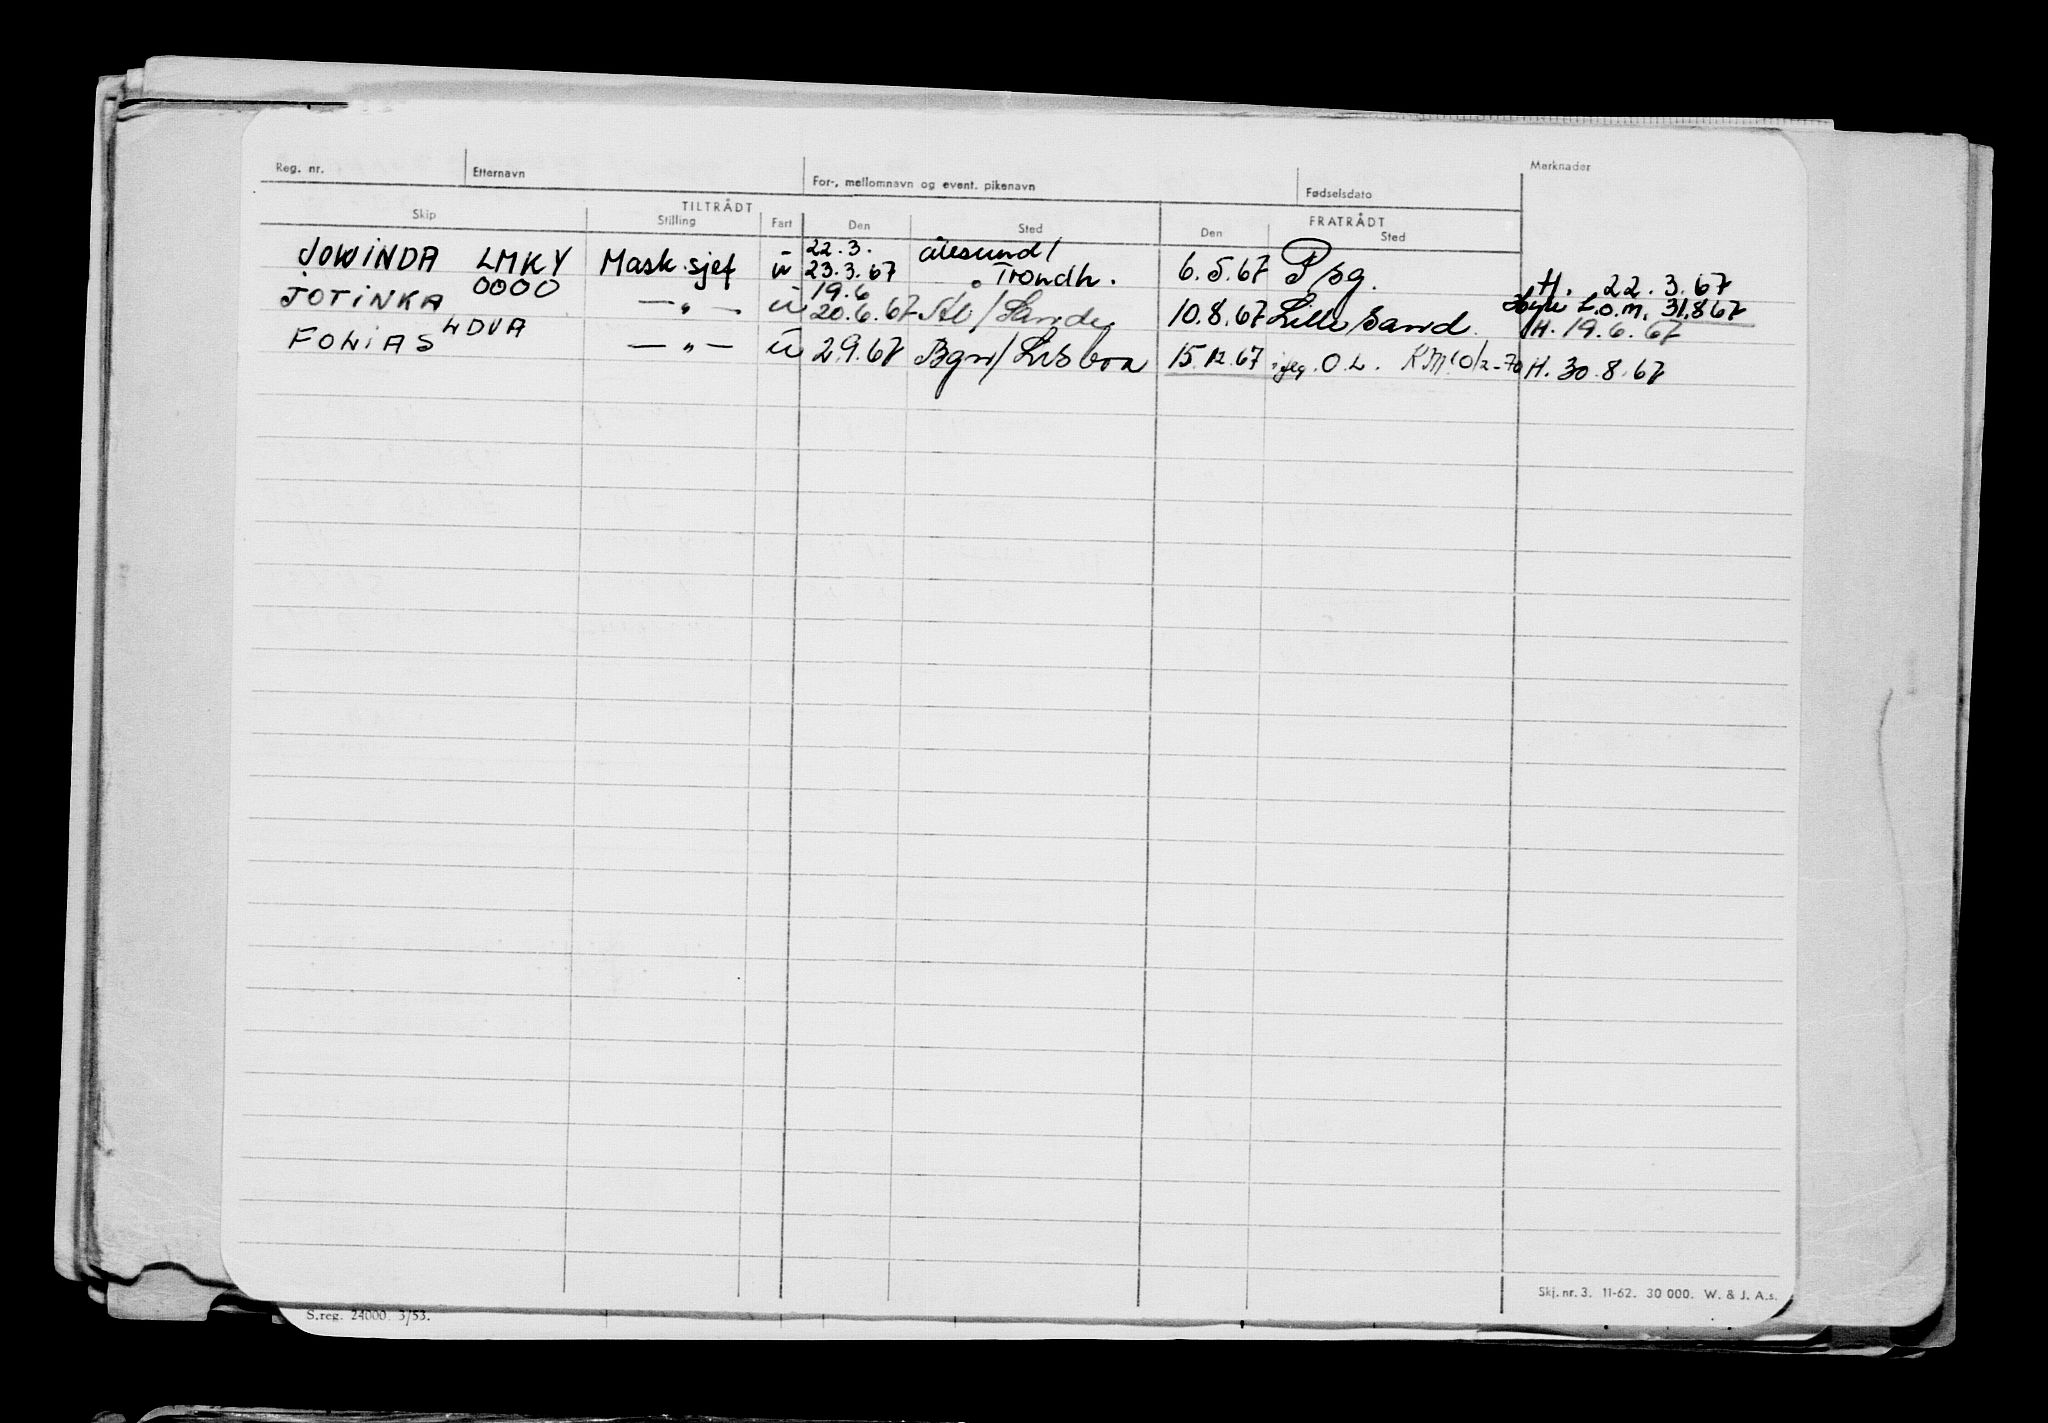 Reg. nr. Etternavn For-, mellomnavn og event. pikenavn Fødselsdato Merknader
TILTRÅDT FRATRÅDT
Skip Stilling Fart Den Sted Den Sted
22.3. Ålesund/
JOWINDA LMKY Mask.sjef ū 23.3.67 Trondh. 6.5.67 Psg. H. 22.3.67
0000 19.6 L.O.M. 31.8.67
JOTINKA —„— ū 20.6.67 Ål/Sandn 10.8.67 Lillesand. H. 19.6.67
LDVA
FOLIAS —„— ū 2.9.67 Bgn/Lisboa 15.12.67 iflg. O.L. KM 10/2-70 H. 30.8.67
Skj. nr. 3. 11-62. 30 000. W. & J. A.s.
S.reg. 24000. 3/53.